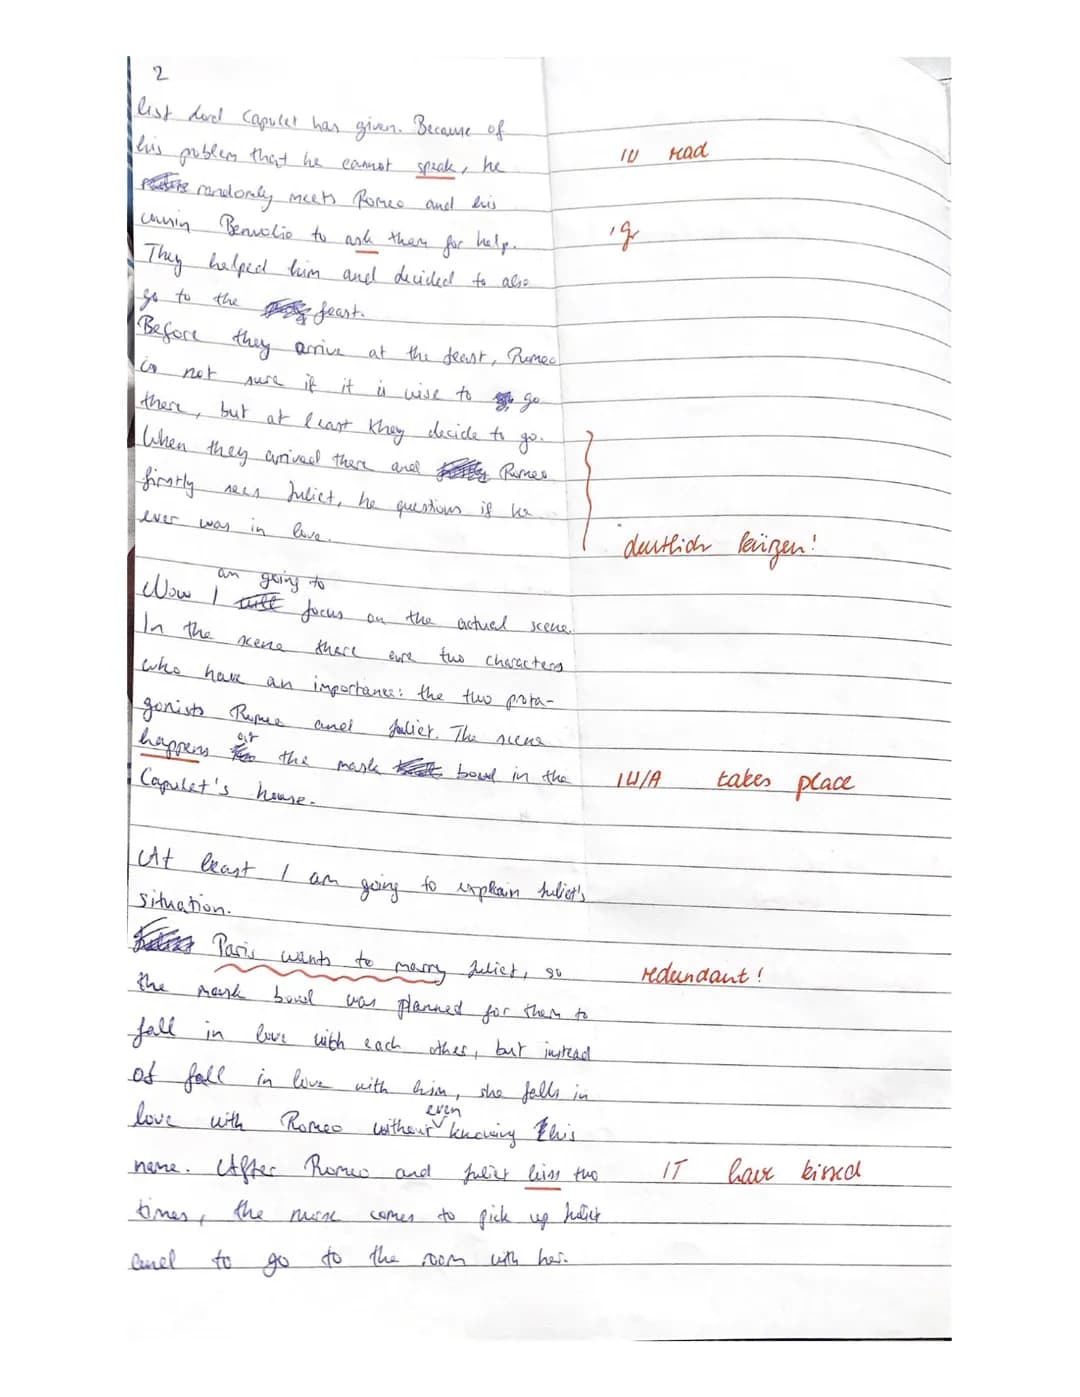 2
list Lord Capulet has given. Because of
his problem that he cannot speak, he
IW read
randomly meets Romeo and his
cousin Benvolio to ask them for help.
They helped him and decided to also
go to the feast.
Before they arrive at the feast, Romeo
is not sure if it is wise to go
there, but at least they decide to go.
When they arrived there and Romeo
firstly sees Juliet, he questions if he
ever was in love.
deutlich kürzen!
am going to
Now I will focus on the actual scene.
In the scene there are two characters
who have an importance: the two prota-
gonists Romeo and Juliet. The scene
at
happens the mask bowl in the
IW/A takes place
Capulet's house.
At least I am going to explain Juliet's
situation.
Paris wants to marry Juliet, so
redundant!
the mask bowl was planned for them to
fall in love with each other, but instead
of fall in love with him, she falls in
even
love with Romeo without knowing his
name. After Romeo and Juliet kiss two
IT have kissed
times, the nurse comes to pick up Juliet
and to go to the room with her.